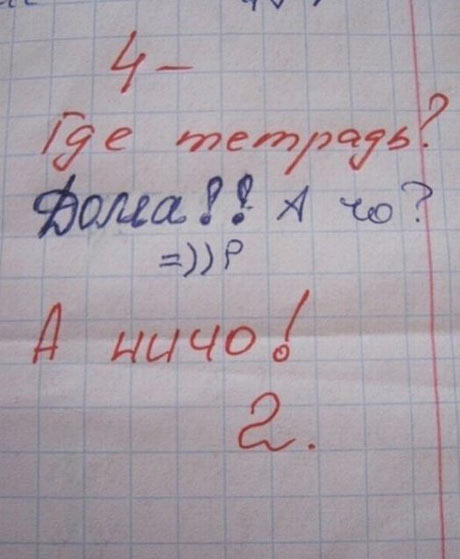 4-
Где тетрадь?
Дома!! А чо?
=))P
А ничо!
2.